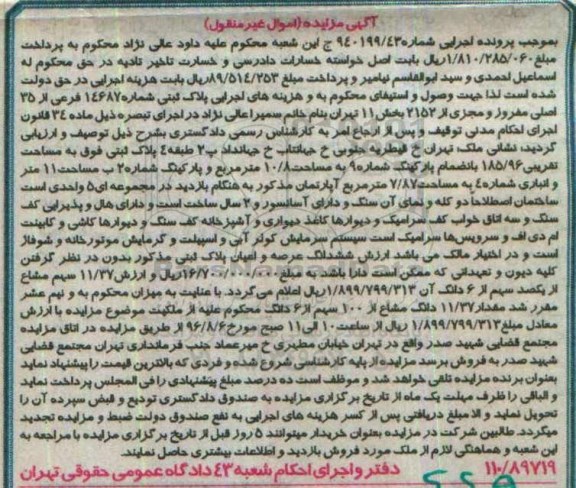 آگهی مزایده (اموال غیرمنقول)
بموجب پرونده اجرایی شماره ۹۴۰۱۹۹/۴۳ ج این شعبه محکوم علیه داود عالی نژاد محکوم به پرداخت
مبلغ ۱/۸۱۰/۲۸۵/۰۶۰ ریال بابت اصل خواسته خسارات دادرسی و خسارت تاخیر تادیه در حق محکوم له
اسماعیل احمدی و سید ابوالقاسم نیامیر و پرداخت مبلغ ۸۹/۵۱۴/۲۵۳ ریال بابت هزینه اجرایی در حق دولت
شده است لذا جهت وصول و استیفای محکوم به و هزینه های اجرایی پلاک ثبتی شماره ۱۴۶۸۷ فرعی از ۳۵
اصلی مفروز و مجزی از ۲۱۵۲ بخش ۱۱ تهران بنام خانم سمیرا عالی نژاد در اجرای تبصره ذیل ماده ۳۴ قانون
اجرای احکام مدنی توقیف و پس از ارجاع امر به کارشناس رسمی دادگستری بشرح ذیل توصیف و ارزیابی
گردید: نشانی ملک، تهران خ قیطریه جنوبی خ جهانتاب خ جهانداد پ ۲ طبقه ۴ پلاک ثبتی فوق به مساحت
تقریبی ۱۸۵/۹۶ بانضمام پارکینگ شماره ۹ به مساحت ۱۰/۸ مترمربع و پارکینگ شماره ۲ ب مساحت ۱۱ متر
و انباری شماره ٤ به مساحت ۷/۸۷ مترمربع آپارتمان مذکور به هنگام بازدید در مجموعه ای ۵ واحدی است
ساختمان اصطلاحا دو کله و نمای آن سنگ و دارای آسانسور و ۲ سال ساخت است و دارای هال و پذیرایی کف
سنگ و سه اتاق خواب کف سرامیک و دیوارها کاغذ دیواری و آشپزخانه کف سنگ و دیوارها کاشی و کابینت
ام دی اف و سرویس‌ها سرامیک است سیستم سرمایش کولر آبی و اسپیلت و گرمایش موتورخانه و شوفاژ
است و در اختیار مالک می باشد ارزش ششدانگ عرصه و اعیان پلاک ثبتی مذکور بدون در نظر گرفتن
کلیه دیون و تعهداتی که ممکن است دارا باشد، به مبلغ ۱۶/۷۰۰/۰۰۰/۰۰۰ ریال و ارزش ۱۱/۳۷ سهم مشاع
از یکصد سهم از ۶ دانگ آن ۱/۸۹۹/۷۹۹/۳۱۳ ریال اعلام می گردد. با عنایت به میزان محکوم به و نیم عشر
مقرر شد مقدار ۱۱/۳۷ دانگ مشاع از ۱۰۰ سهم از ۶ دانگ محکوم علیه از ملکیت موضوع مزایده با ارزش
معادل مبلغ ۱/۸۹۹/۷۹۹/۳۱۳ ریال از ساعت ۱۰ الی ۱۱ صبح مورخ ۹۶/۸/۶ از طریق مزایده در اتاق مزایده
مجتمع قضایی شهید صدر واقع در تهران خیابان مطهری خ میرعماد جنب فرمانداری تهران مجتمع قضایی
شهید صدر به فروش برسد مزایده از پایه کارشناسی شروع شده و فردی که بالاترین قیمت را پیشنهاد نماید
بعنوان برنده مزایده تلقی خواهد شد و موظف است ده درصد مبلغ پیشنهادی را فی المجلس پرداخت نماید
و الباقی را ظرف مهلت یک ماه از تاریخ برگزاری مزایده به صندوق دادگستری تودیع و قبض سپرده آن را
تحویل نماید و الا مبلغ دریافتی پس از کسر هزینه های اجرایی به نفع صندوق دولت ضبط و مزایده تجدید
میگردد. طالبین شرکت در مزایده بعنوان خریدار میتوانند ۵ روز قبل از تاریخ برگزاری مزایده با مراجعه به
این شعبه و هماهنگی لازم از ملک مورد فروش بازدید و اطلاعات بیشتری حاصل نمایند.
۱۱۰/۸۹۷۱۹ دفتر و اجرای احکام شعبه ۴۳ دادگاه عمومی حقوقی تهران